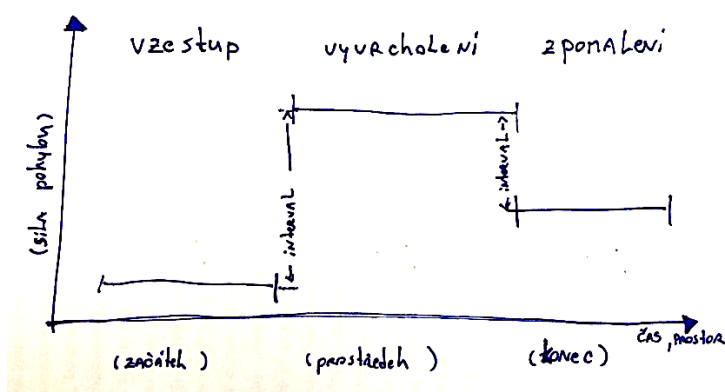 vzestup
vyvrcholení
zpomalení
(síla pohybu)
← interval →
← interval →
čas, prostor
(začátek)
(prostředek)
(konec)